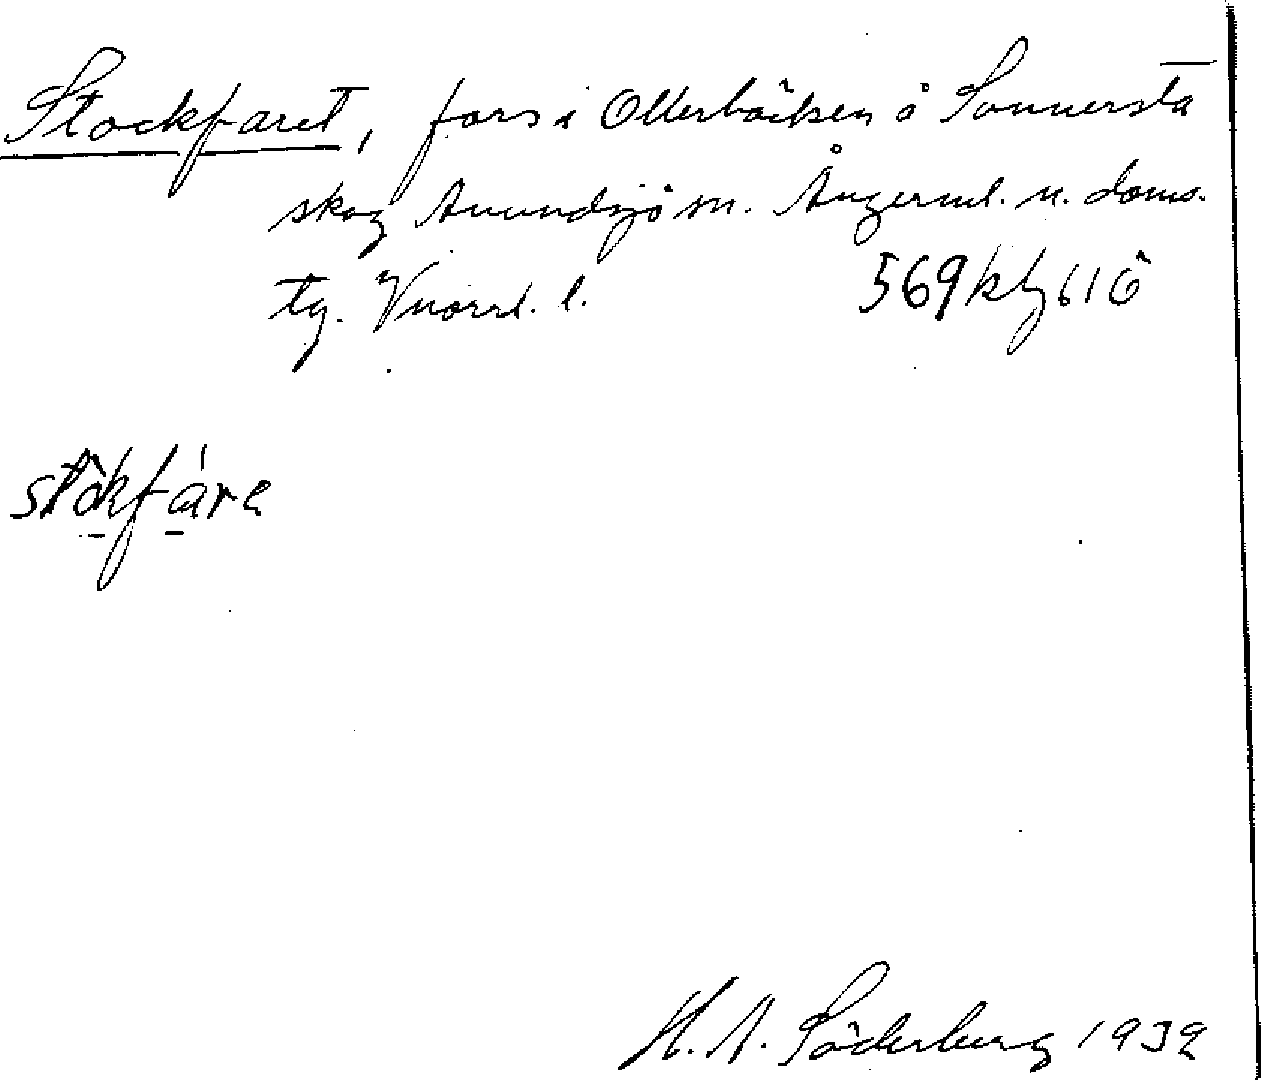 Stockfaret, fors i Otterbäcken å Sunnersta
skog Anundsjö sn. Ångerml. n. doms.
tg. Vnorrl. l. 569
stòkfáre
H. A. Söderberg 1932